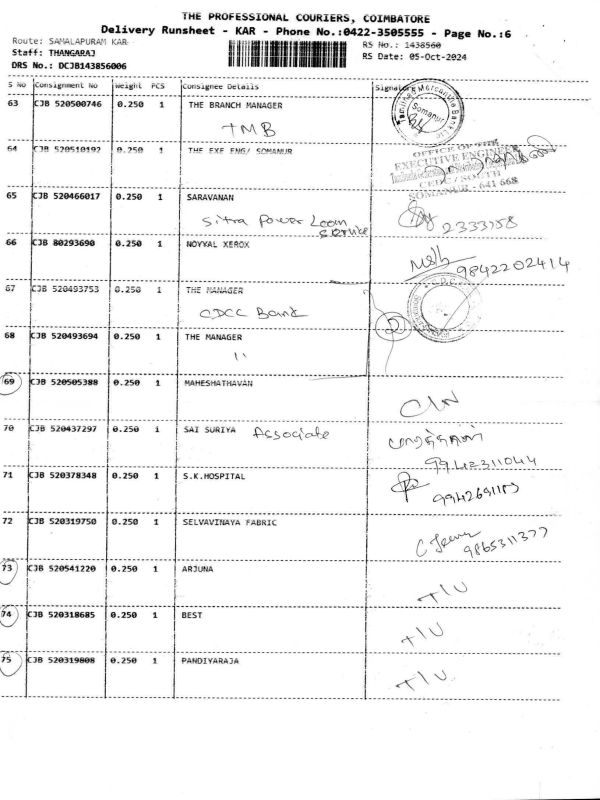 THE PROFESSIONAL COURIERS, COIMBATORE
Delivery Runsheet - KAR - Phone No.:0422-3505555 - Page No.:6
Route: SAMALAPURAM KAR
RS No.: 1438560
Staff: THANGARAJ
RS Date: 05-Oct-2024
DRS No.: DCJB143856006
S No Consignment No Weight PCS Consignee Details Signature
63 CJB 520500746 0.250 1 THE BRANCH MANAGER
TMB
Tamilnad Mercantile Bank Ltd
Somanur
64 CJB 520510192 0.250 1 THE EXE ENG/ SOMANUR
OFFICE OF THE
EXECUTIVE ENGINEER
CEDC / SOUTH
SOMANUR - 641 668
65 CJB 520466017 0.250 1 SARAVANAN
Sitra Power Loom
Service
2333158
66 CJB 80293690 0.250 1 NOYYAL XEROX
9842202414
67 CJB 520493753 0.250 1 THE MANAGER
CDCC Bank
68 CJB 520493694 0.250 1 THE MANAGER
11
69 CJB 520505388 0.250 1 MAHESHATHAVAN
CIN
70 CJB 520437297 0.250 1 SAI SURIYA Associate
9942311044
71 CJB 520378348 0.250 1 S.K.HOSPITAL
9942691183
72 CJB 520319750 0.250 1 SELVAVINAYA FABRIC
9865311377
73 CJB 520541220 0.250 1 ARJUNA
TIU
74 CJB 520318685 0.250 1 BEST
TIU
75 CJB 520319808 0.250 1 PANDIYARAJA
TIU